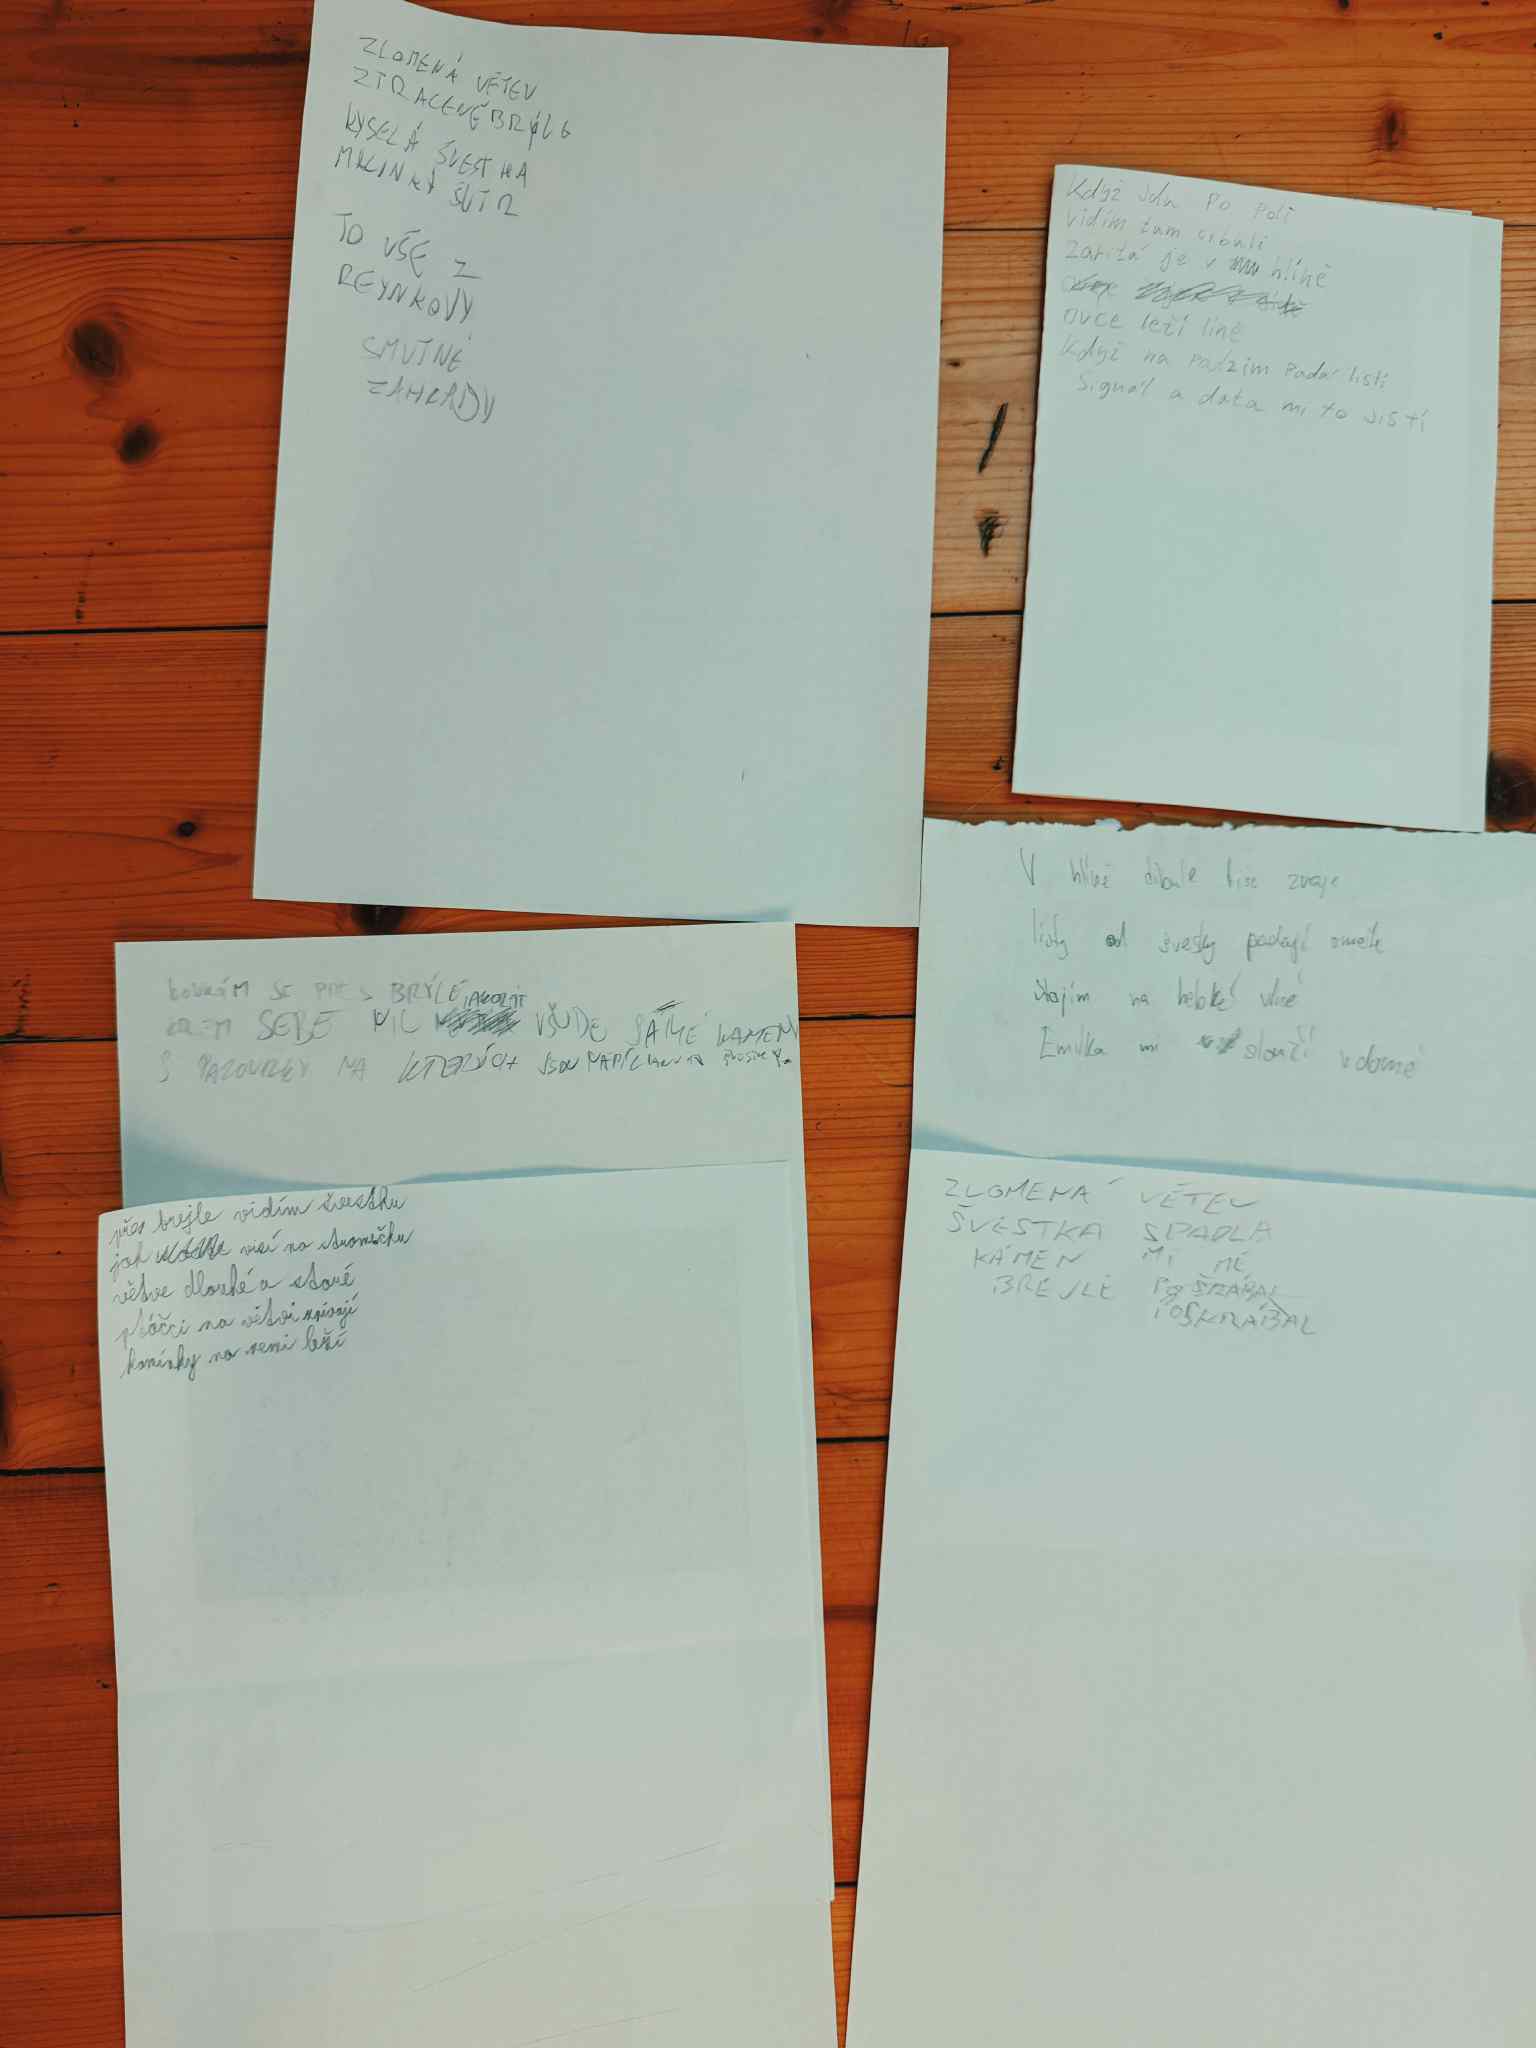 ZLOMENÁ VĚTEV
ZTRACENÉ BRÝLE
KYSELÁ ŠVESTKA
MALINKÝ ŠUTR
TO VŠE Z
REYNKOVY
SMUTNÉ
ZAHRADY
Když jdu po poli
vidím tam cibuli
Zaritá je v hlíně
ovce leží líně
Když na podzim padá listí
Signál a data mi to jistí
V hlíně cibule tiše zraje
listy od švestky padají
na hebké vlně
Emilka mi slouží
KOUKÁM SE PŘES BRÝLE
KOLEM SEBE VŠUDE SAMÉ KAMENY
S PAZOURKY NA KTERÝCH JSOU
přes brejle vidím švestku
jak visí na stromečku
větve dlouhé a staré
ptáčci na větvi zpívají
kamínky na zemi leží
ZLOMENÁ VĚTEV
ŠVESTKA SPADLA
KÁMEN MI MÉ
BREJLE POŠKRÁBAL
POŠKRÁBAL